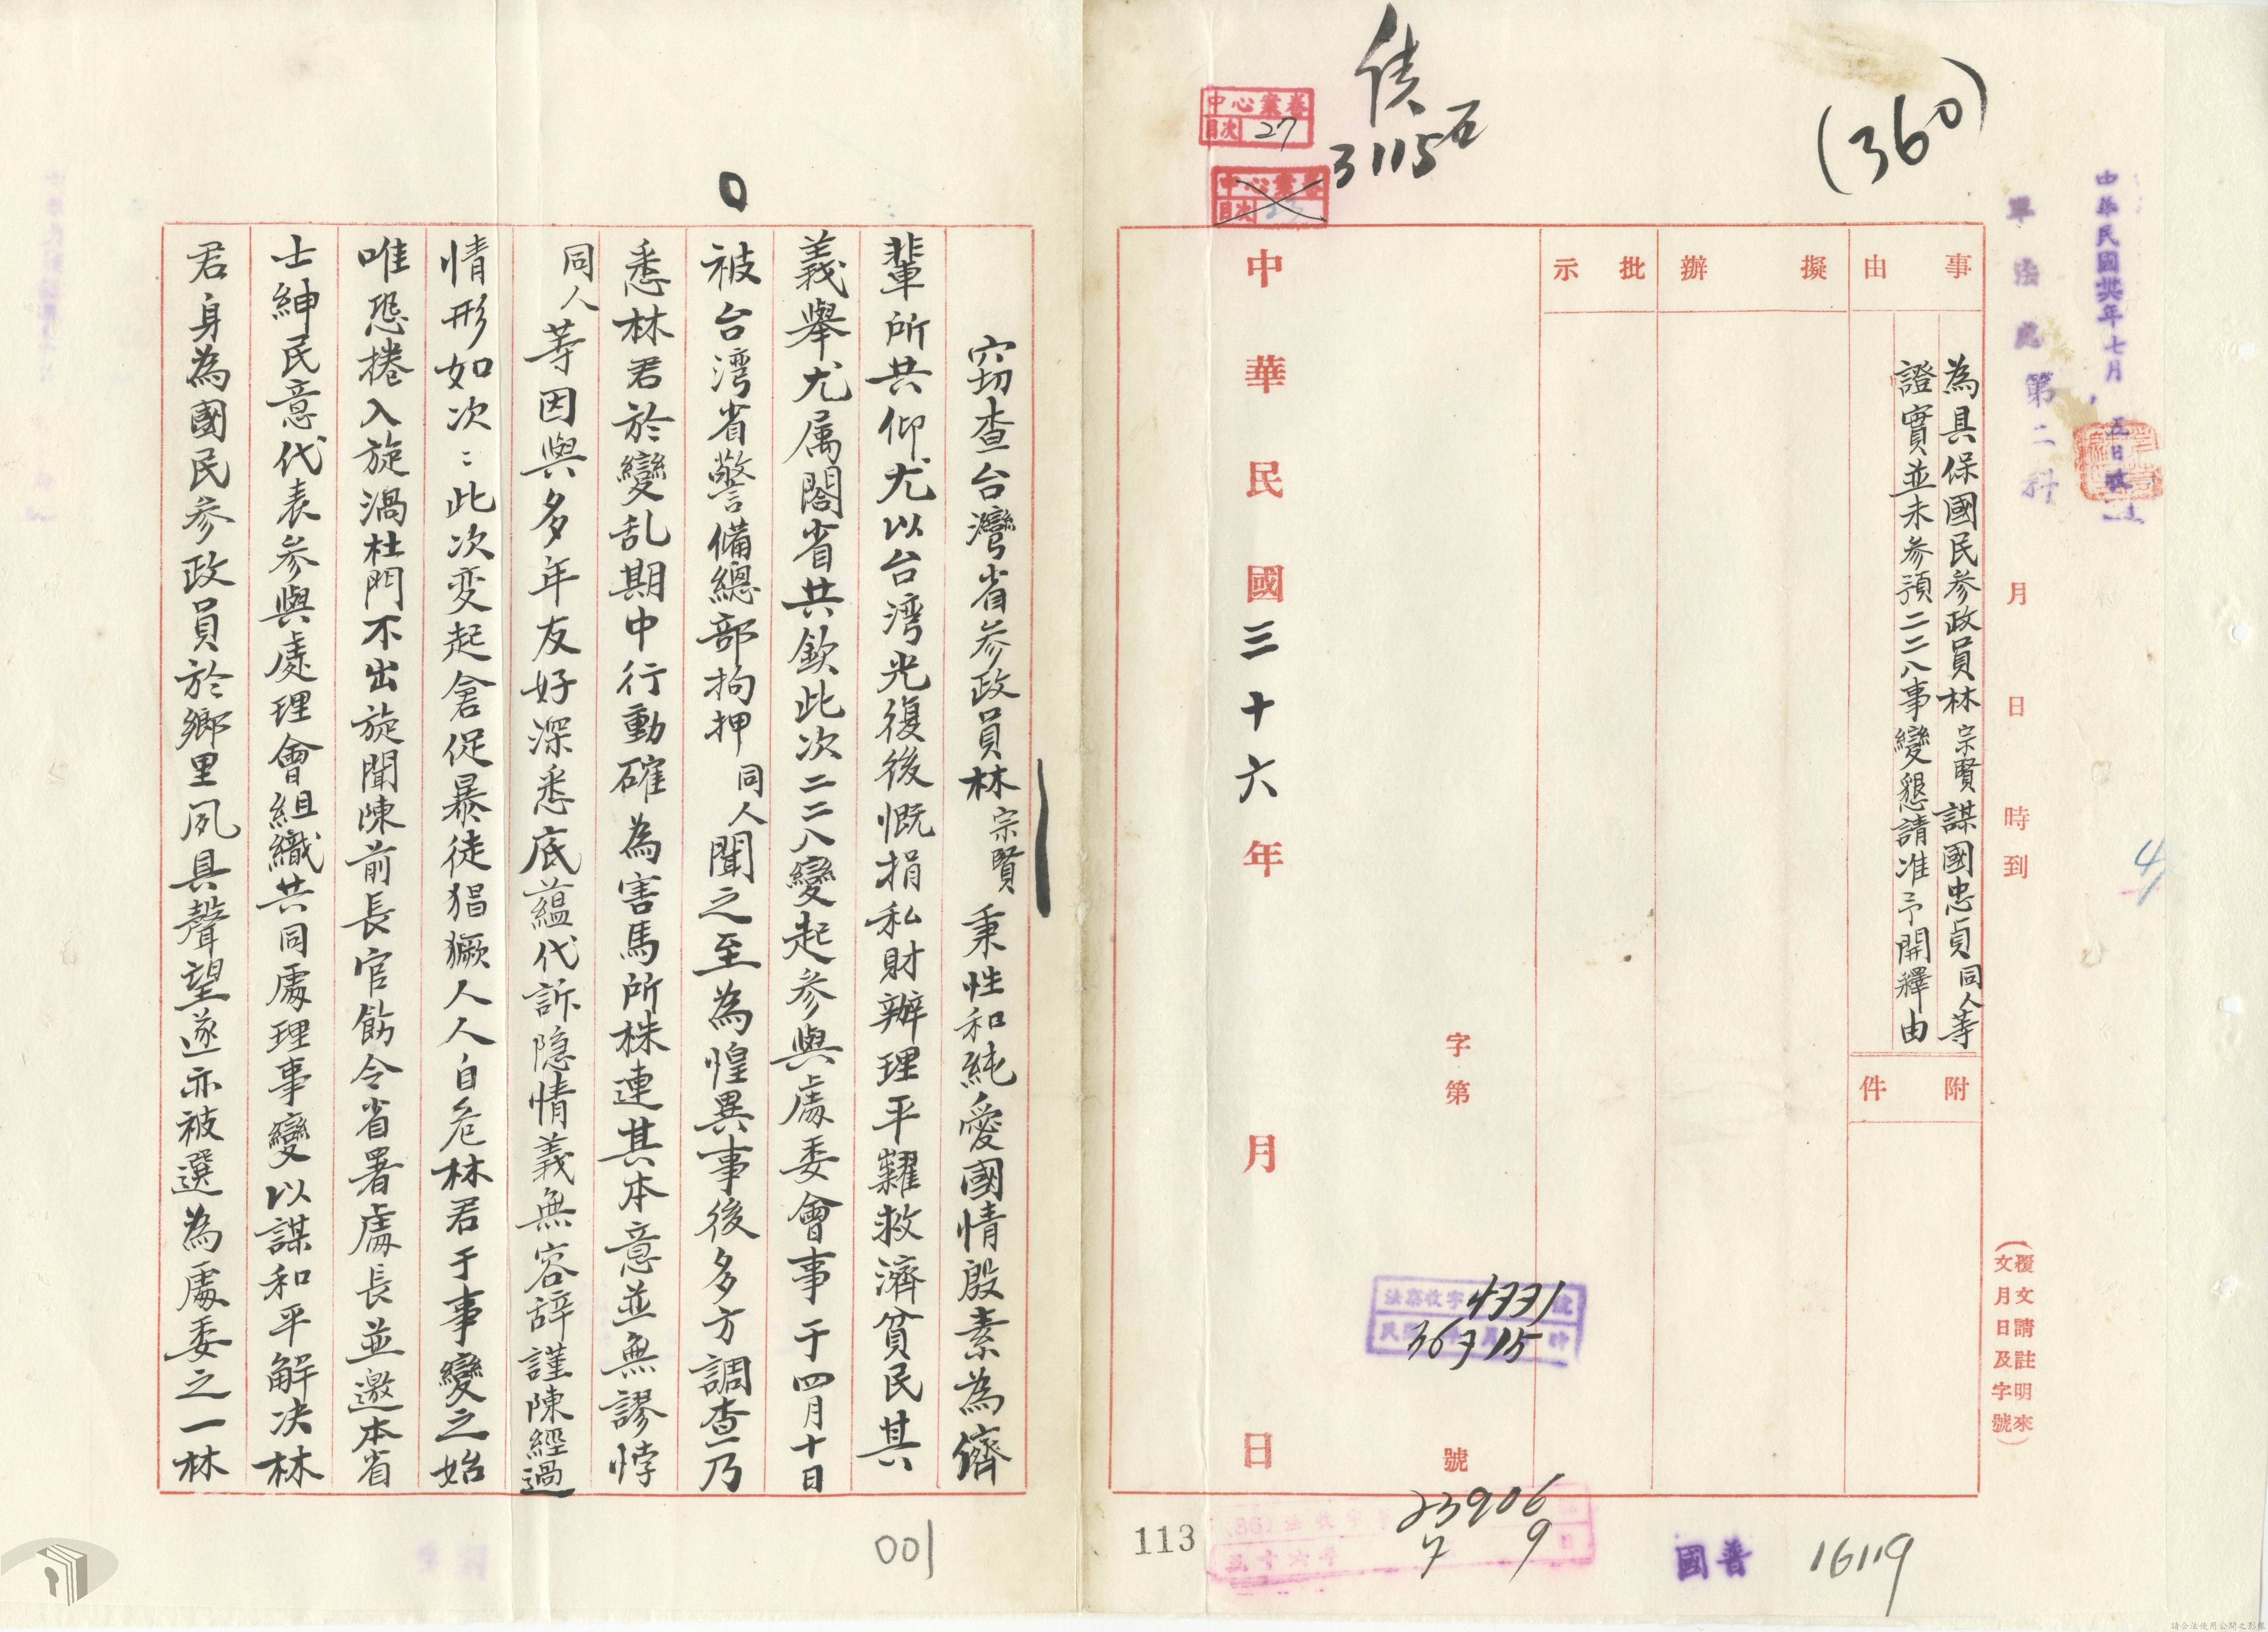 (360)
中華民國卅六年七月五日收
軍法處第二科
月 日 時到
(覆文請註明來
文月日及字號)
事由
為具保國民參政員林宗賢謀國忠貞同人等
證實並未參預二二八事變懇請准予開釋由
附件
擬辦
批示
字第 號
中華民國三十六年 月 日
3115
中心案卷
目次 27
中心案卷
目次
法收字 號
4331
36 7 15
23906
7 9
普國
16119
113
竊查台灣省參政員林宗賢秉性和純愛國情殷素為儕
輩所共仰尤以台湾光復後慨捐私財辦理平糶救濟貧民其
義舉尤属閤省共欽此次二二八變起參與處委會事于四月十日
被台湾省警備總部拘押同人聞之至為惶異事後多方調查乃
悉林君於變乱期中行動確為害馬所株連其本意並無謬悖
同人等因與多年友好深悉底蘊代訴隐情義無容辞謹陳經過
情形如次：此次变起倉促暴徒猖獗人人自危林君于事變之始
唯恐捲入旋渦杜門不出旋聞陳前長官飭令省署處長並邀本省
士紳民意代表參與處理會組織共同處理事變以謀和平解决林
君身為國民參政員於鄉里夙具聲望遂亦被選為處委之一林
001
請合法使用公開之影像